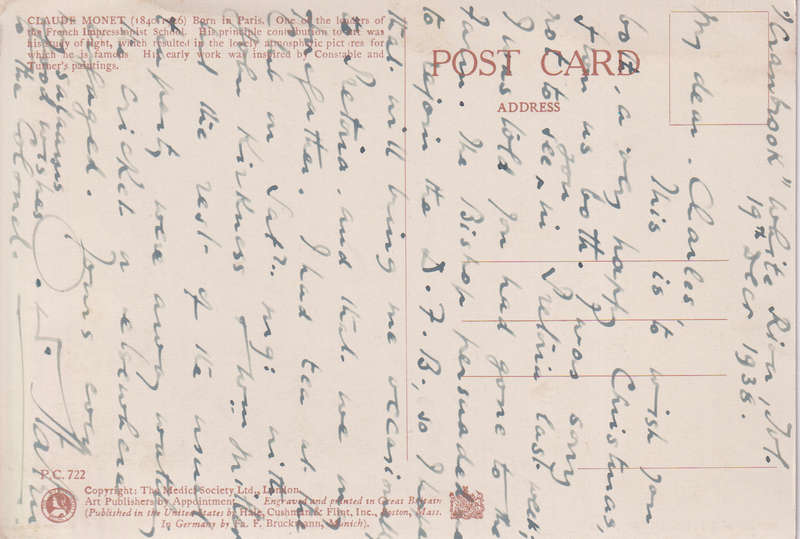 CLAUDE MONET (1840-1926) Born in Paris. One of the leaders of
the French Impressionist School. His principle contribution to art was
his study of light, which resulted in the lovely atmospheric pictures for
which he is famous His early work was inspired by Constable and
Turner's paintings.
POST CARD
ADDRESS
P.C. 722
Copyright: The Medici Society Ltd., London.
Art Publishers by Appointment. Engraved and printed in Great Britain
(Published in the United States by Hale, Cushman & Flint, Inc., Boston, Mass.
In Germany by Fa. F. Bruckmann, Munich).
"Cranbrook" White River, Tvl.
19th Decr 1938.
My dear Charles
This is to wish you
both, a very happy Christmas,
from us both. I was sorry
not to see you in Pretoria last week;
I was told you had gone to the
farm. The Bishop persuaded me
to rejoin the D.F.B., so I hope
that will bring me occasionally
to Pretoria, and that we may
forgather. I had tea at the
on Satdy. mg: with
Kirkness Tom Milner
and the rest of the usual
party were away watching
cricket & elsewhere
engaged. Yours ever
good wishes
to the Colonel.